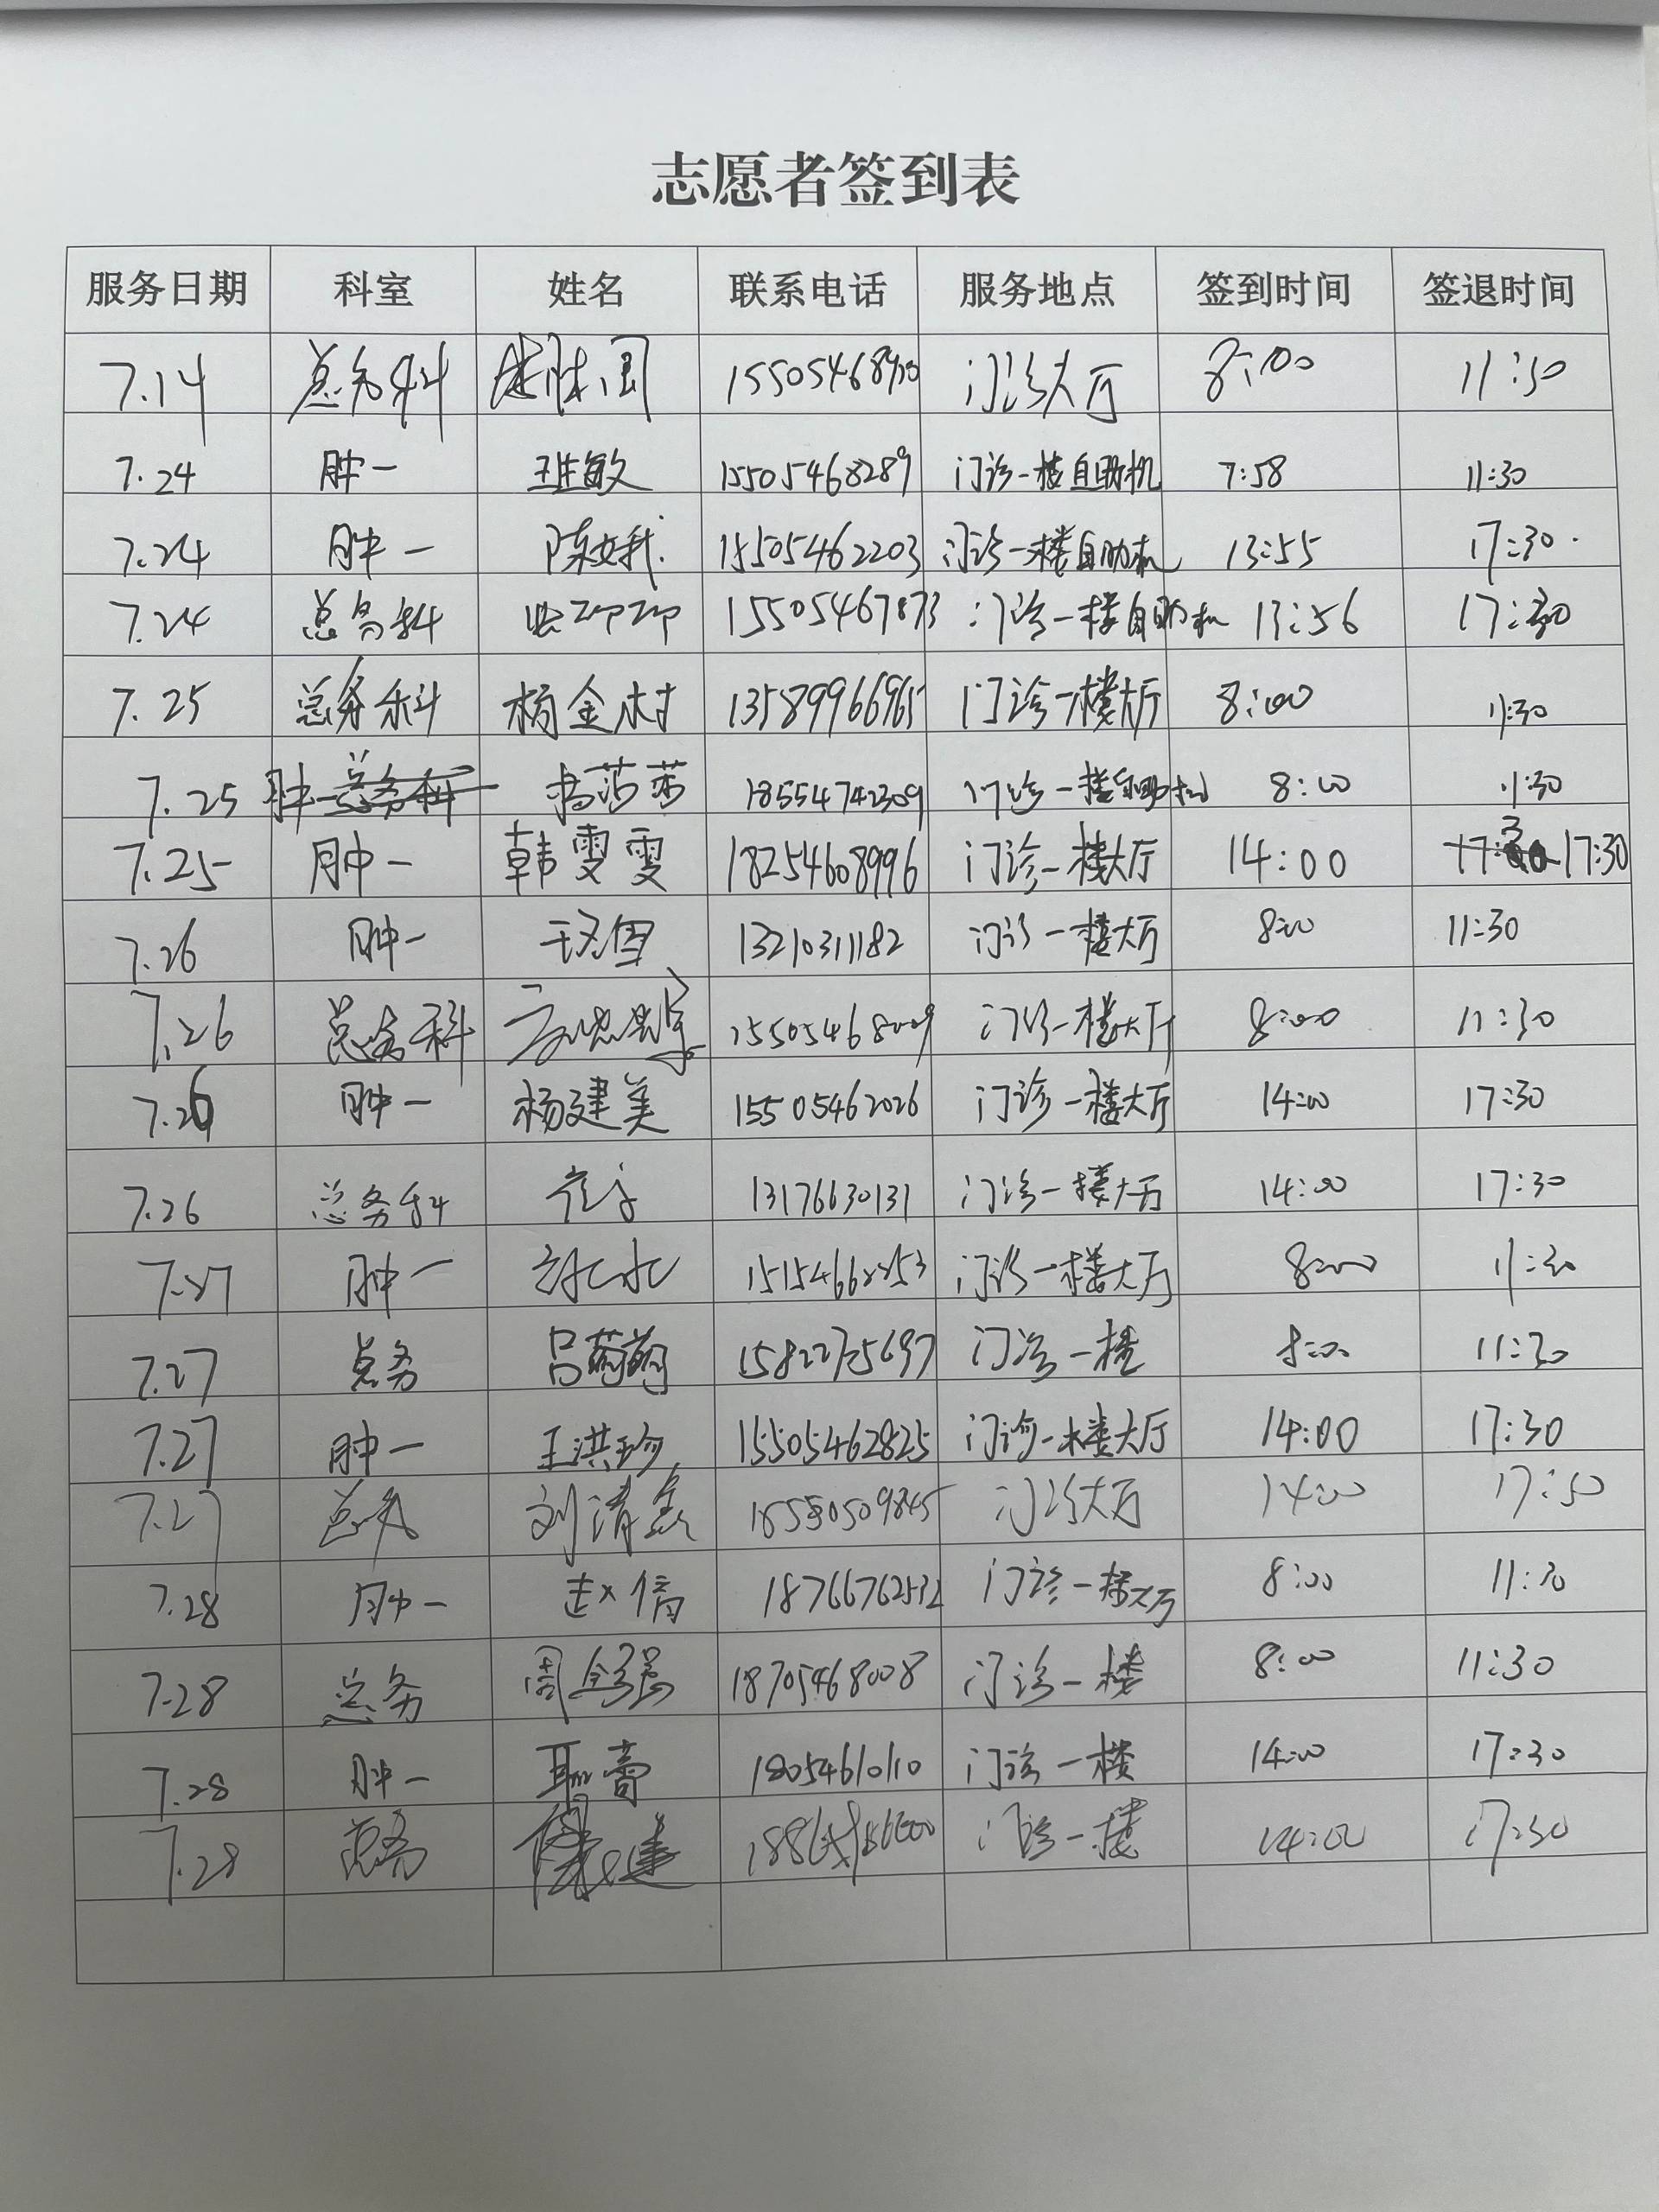 志愿者签到表
服务日期 科室 姓名 联系电话 服务地点 签到时间 签退时间
7.14 总务科 门诊大厅 8:00 11:30
7.24 肿一 15505468289 门诊一楼自助机 7:58 11:30
7.24 肿一 15505462203 门诊一楼自助机 13:55 17:30
7.24 总务科 15505467873 门诊一楼自助机 13:56 17:30
7.25 总务科 杨金村 13589966965 门诊一楼大厅 8:00 11:30
7.25 肿一 莎莎 18554742309 门诊一楼自助机 8:00 11:30
7.25 肿一 韩雯雯 18254608996 门诊一楼大厅 14:00 17:30
7.26 肿一 13210311182 门诊一楼大厅 8:00 11:30
7.26 总务科 15505468009 门诊一楼大厅 8:00 11:30
7.26 肿一 杨建美 15505462026 门诊一楼大厅 14:00 17:30
7.26 总务科 13176630131 门诊一楼大厅 14:00 17:30
7.27 肿一 门诊一楼大厅 8:00 11:30
7.27 总务 吕萌萌 15822735697 门诊一楼 8:00 11:30
7.27 肿一 王洪珍 15505462825 门诊一楼大厅 14:00 17:30
7.27 总务 刘清 门诊大厅 14:00 17:30
7.28 肿一 赵倩 18766762532 门诊一楼大厅 8:00 11:30
7.28 总务 周金强 18705468008 门诊一楼 8:00 11:30
7.28 肿一 耿蕾 18054610110 门诊一楼 14:00 17:30
7.28 总务 门诊一楼 14:00 17:30